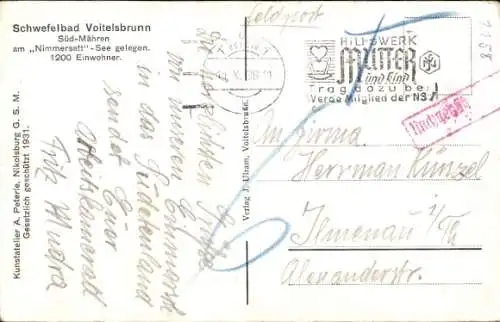 Schwefelbad Voitelsbrunn
Süd-Mähren
am „Nimmersatt"-See gelegen.
1200 Einwohner.
Kunstatelier A. Poterle, Nikolsburg G. S. M.
Gesetzlich geschützt 1931.
Die herzlichsten Grüße
von unseren Einmarsch
in das Sudetenland
sendet Euer
Arbeitskamerad
Fritz
Verlag J. Ulzam, Voitelsbrunn
Feldpost
HILFSWERK
MUTTER
und Kind
Trag dazu bei
Werde Mitglied der NSV
Nachgebühr
An Firma
Herrman Künzel
Ilmenau i/Th
Alexanderstr.